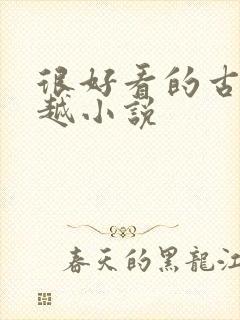 很好看的古
越小说
春天的黑龍江